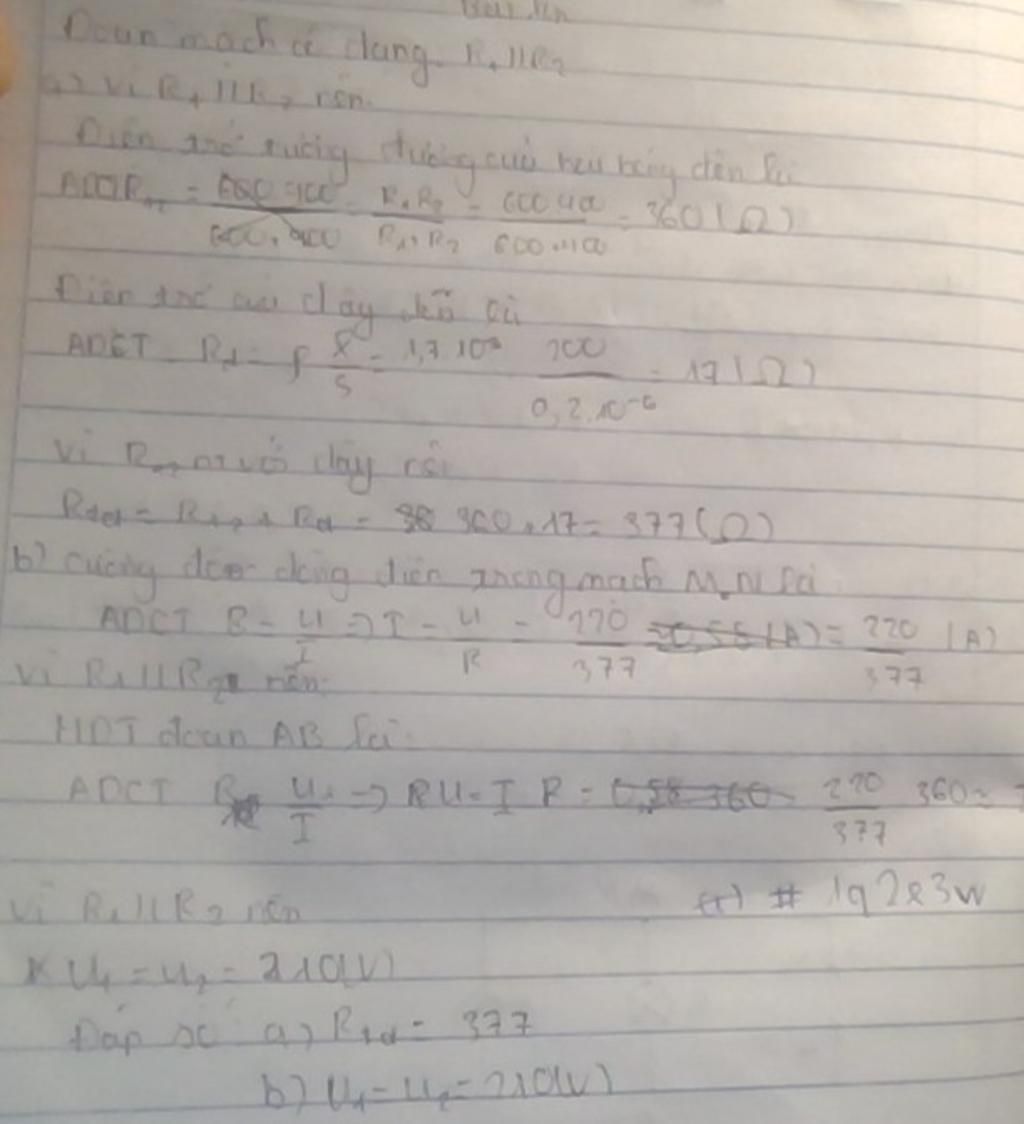 Bài làm
Đoạn mạch có dạng R₁ // R₂
a) Vì R₁ // R₂ nên
Điện trở tương đương của hai bóng đèn là
ADCT R₁₂ = R₁R₂ / R₁+R₂ = 600.900 / 600+900 = 360 (Ω)
Điện trở của dây dẫn là
ADCT Rd = ρ l/S = 1,7.10⁻⁸ 200 / 0,2.10⁻⁶ = 17 (Ω)
Vì R₁₂ nt với dây nên
Rtđ = R₁₂ + Rd = 360 + 17 = 377 (Ω)
b) Cường độ dòng điện trong mạch MN là
ADCT R = U/I => I = U/R = 220/377 = 220/377 (A)
Vì R₁ // R₂ nên
HĐT đoạn AB là
ADCT R = U/I => RU = I R = 220/377 360 =
(+) # 1q2e3w
Vì R₁ // R₂ nên
* U₁ = U₂ = 210(V)
Đáp số a) Rtđ = 377
b) U₁ = U₂ = 210(V)